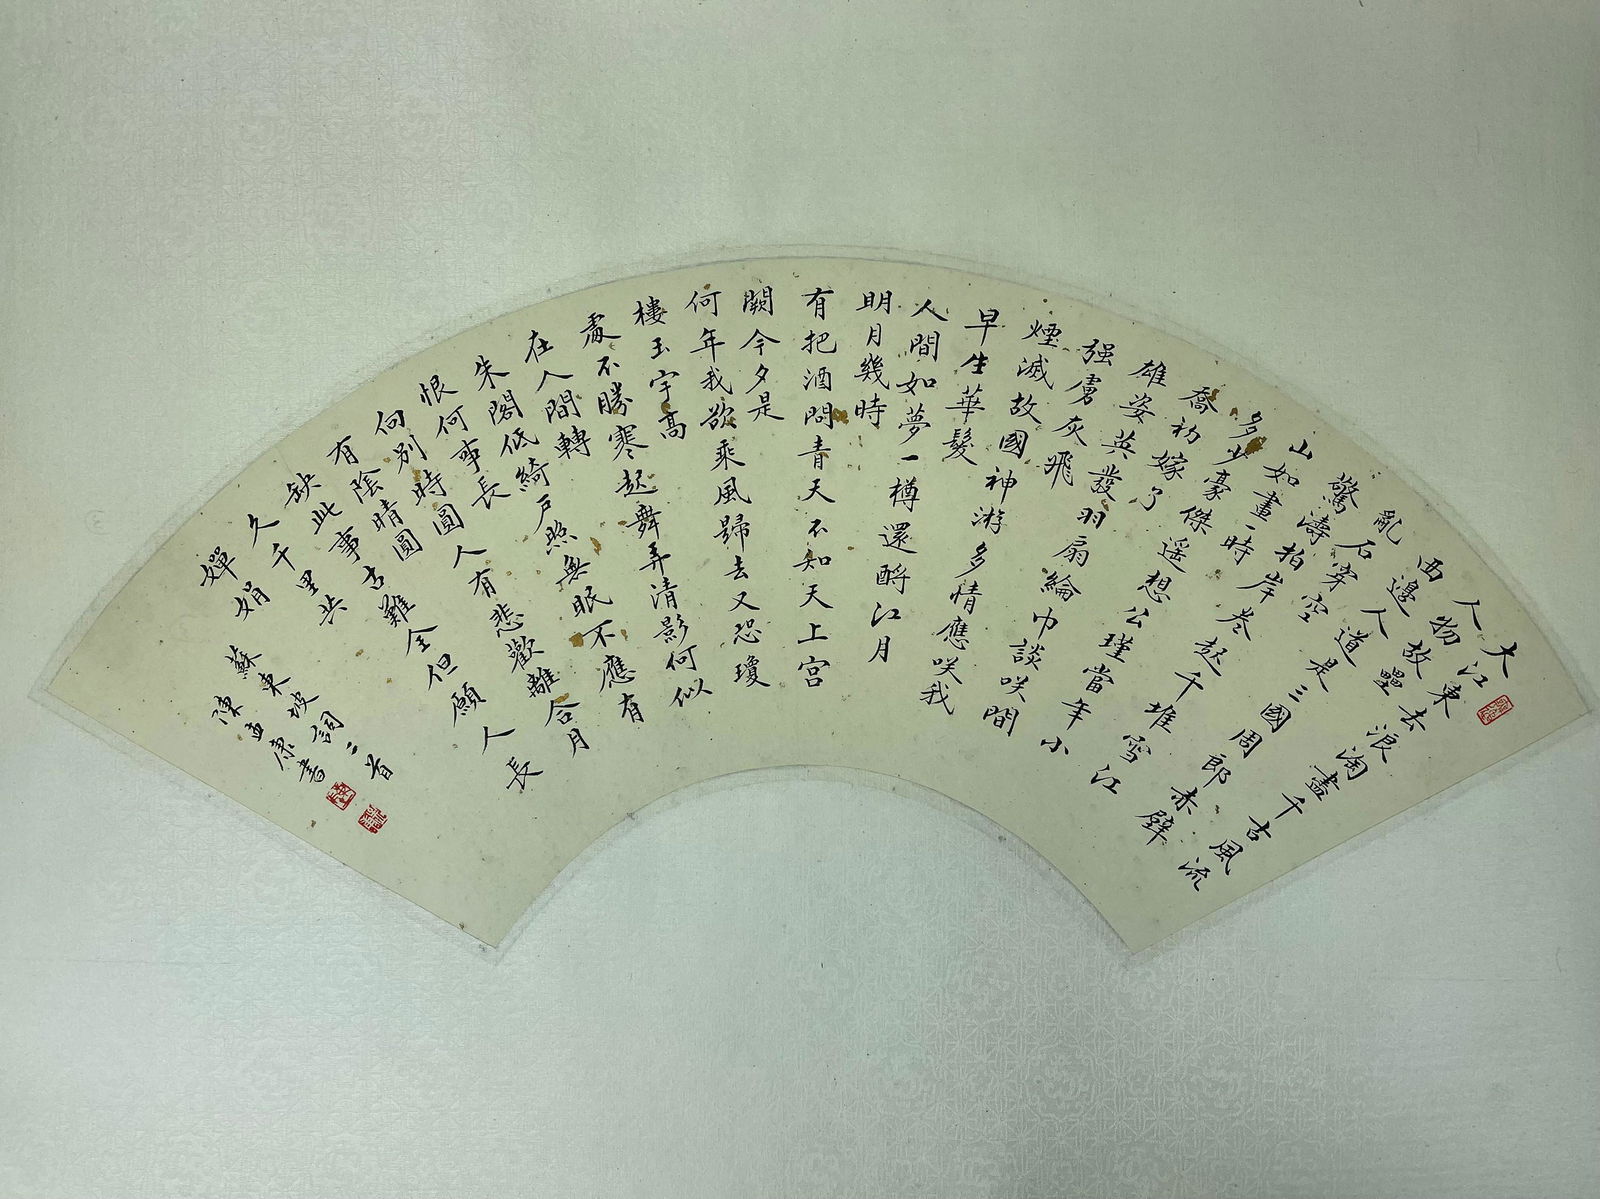 大江東去浪淘盡千古風流
人物故壘
西邊人道是三國周郎赤壁
亂石穿空
驚濤拍岸卷起千堆雪江
山如畫一時
多少豪傑遙想公瑾當年小
喬初嫁了
雄姿英發羽扇綸巾談咲間
强虜灰飛
煙滅故國神游多情應咲我
早生華髮
人間如夢一樽還酹江月
明月幾時
有把酒問青天不知天上宮
闕今夕是
何年我欲乘風歸去又恐瓊
樓玉宇高
處不勝寒起舞弄清影何似
在人間轉
朱閣低綺戶照無眠不應有
恨何事長
向別時圓人有悲歡離合月
有陰晴圓
缺此事古難全但願人長
久千里共
嬋娟
蘇東坡詞二首
陳孟康書